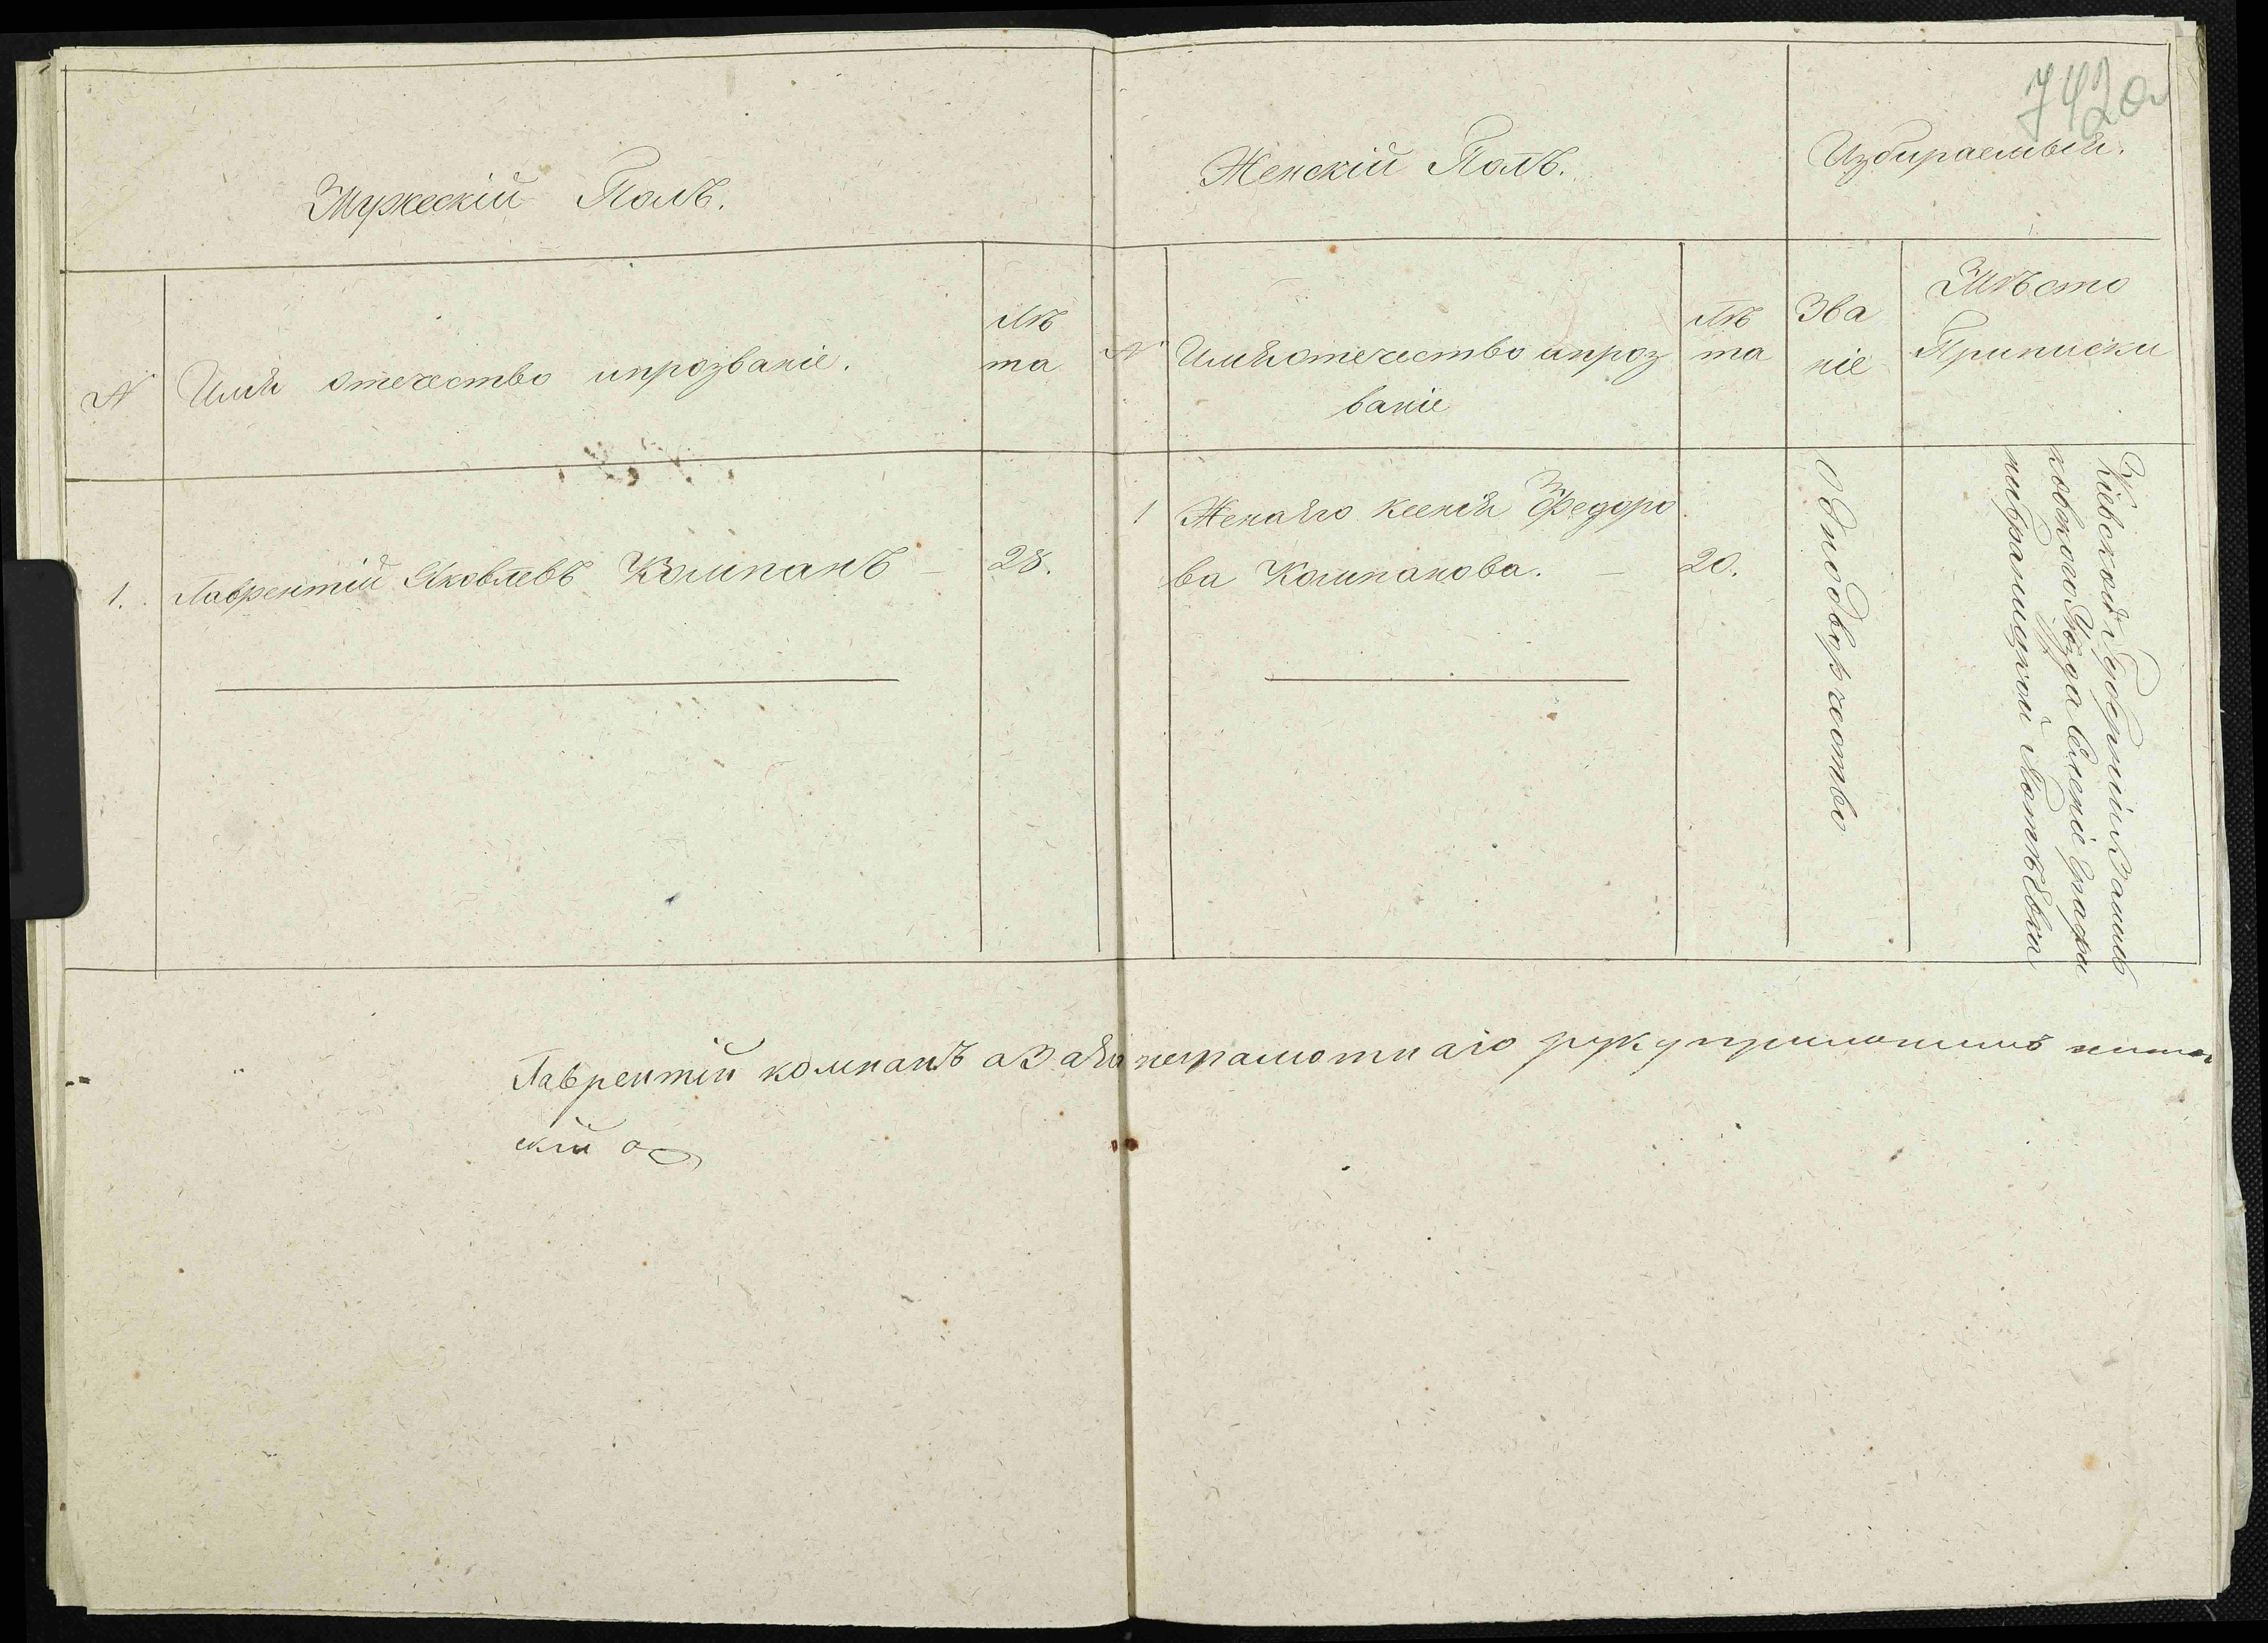 742а
Мужескій Полъ.
Женскій Полъ.
Избираемыя.
№
Имя отечество ипрозваніе.
Лѣ
та
№
Имя отечество ипроз
ваніе
Лѣ
та
Зва
ніе
Мѣсто
Приписки
1.
Лаврентій Яковлевъ Компанъ —
28.
1
Жена Его Ксенія Федоро
ва Компанова. —
20.
Однодворчество
Кіевской Губерніи
Уѣзда
Лаврентій компанъ а За Его неграмотнаго руку приложилъ
скій